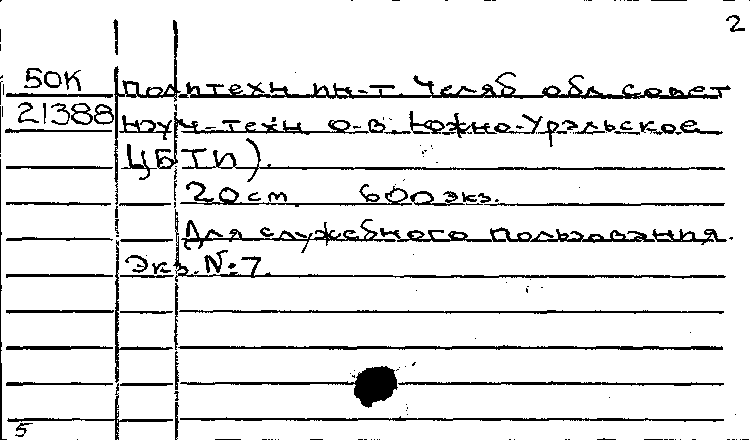 2
50К политехн ин-т. Челяб обл совет
21388 науч-техн о-в. Южно-Уральское
ЦБТИ).
20 см. 600 экз.
Для служебного пользования.
Экз. №7.
5